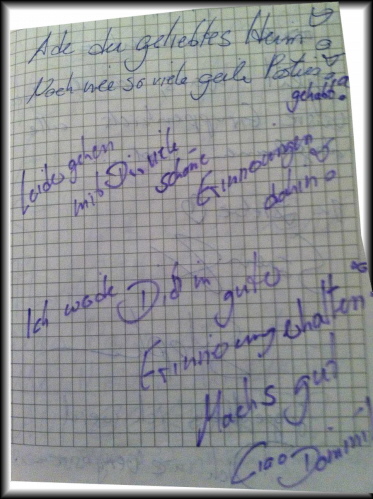 Ade du geliebtes Heim
Noch nie so viele geile Parties
gehabt.
Leider gehen
mit Dir viele
schöne
Erinnerungen
dahin.
Ich werde Dich in guter
Erinnerung behalten
Machs gut
Ciao Domini